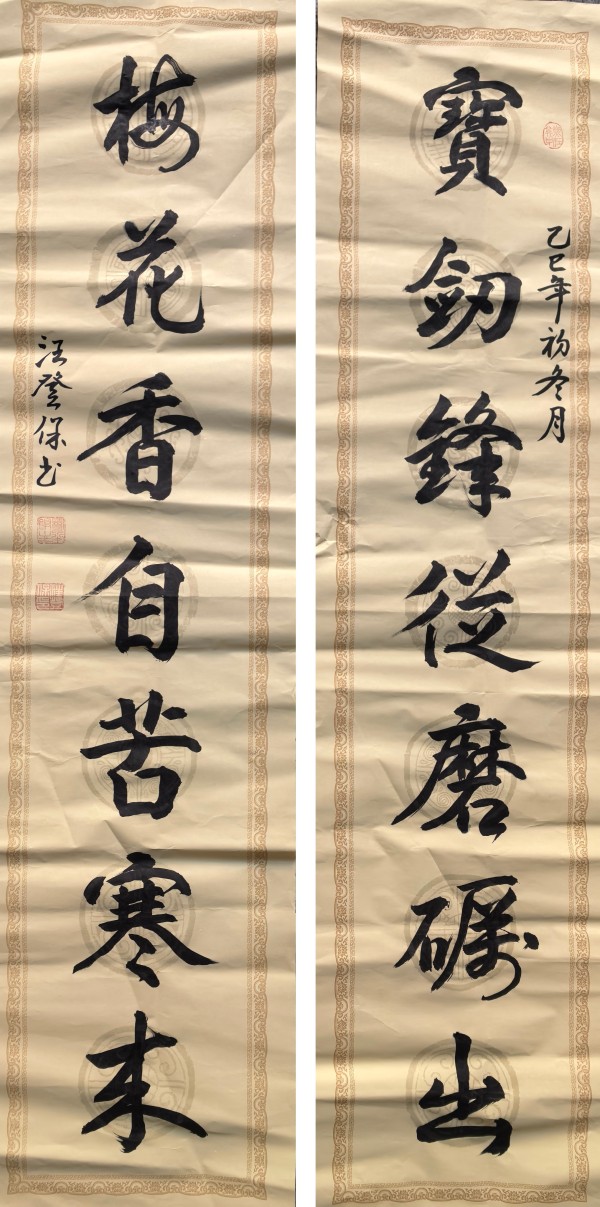 寶劒鋒從磨礪出
乙巳年初冬月
梅花香自苦寒来
汪登保书